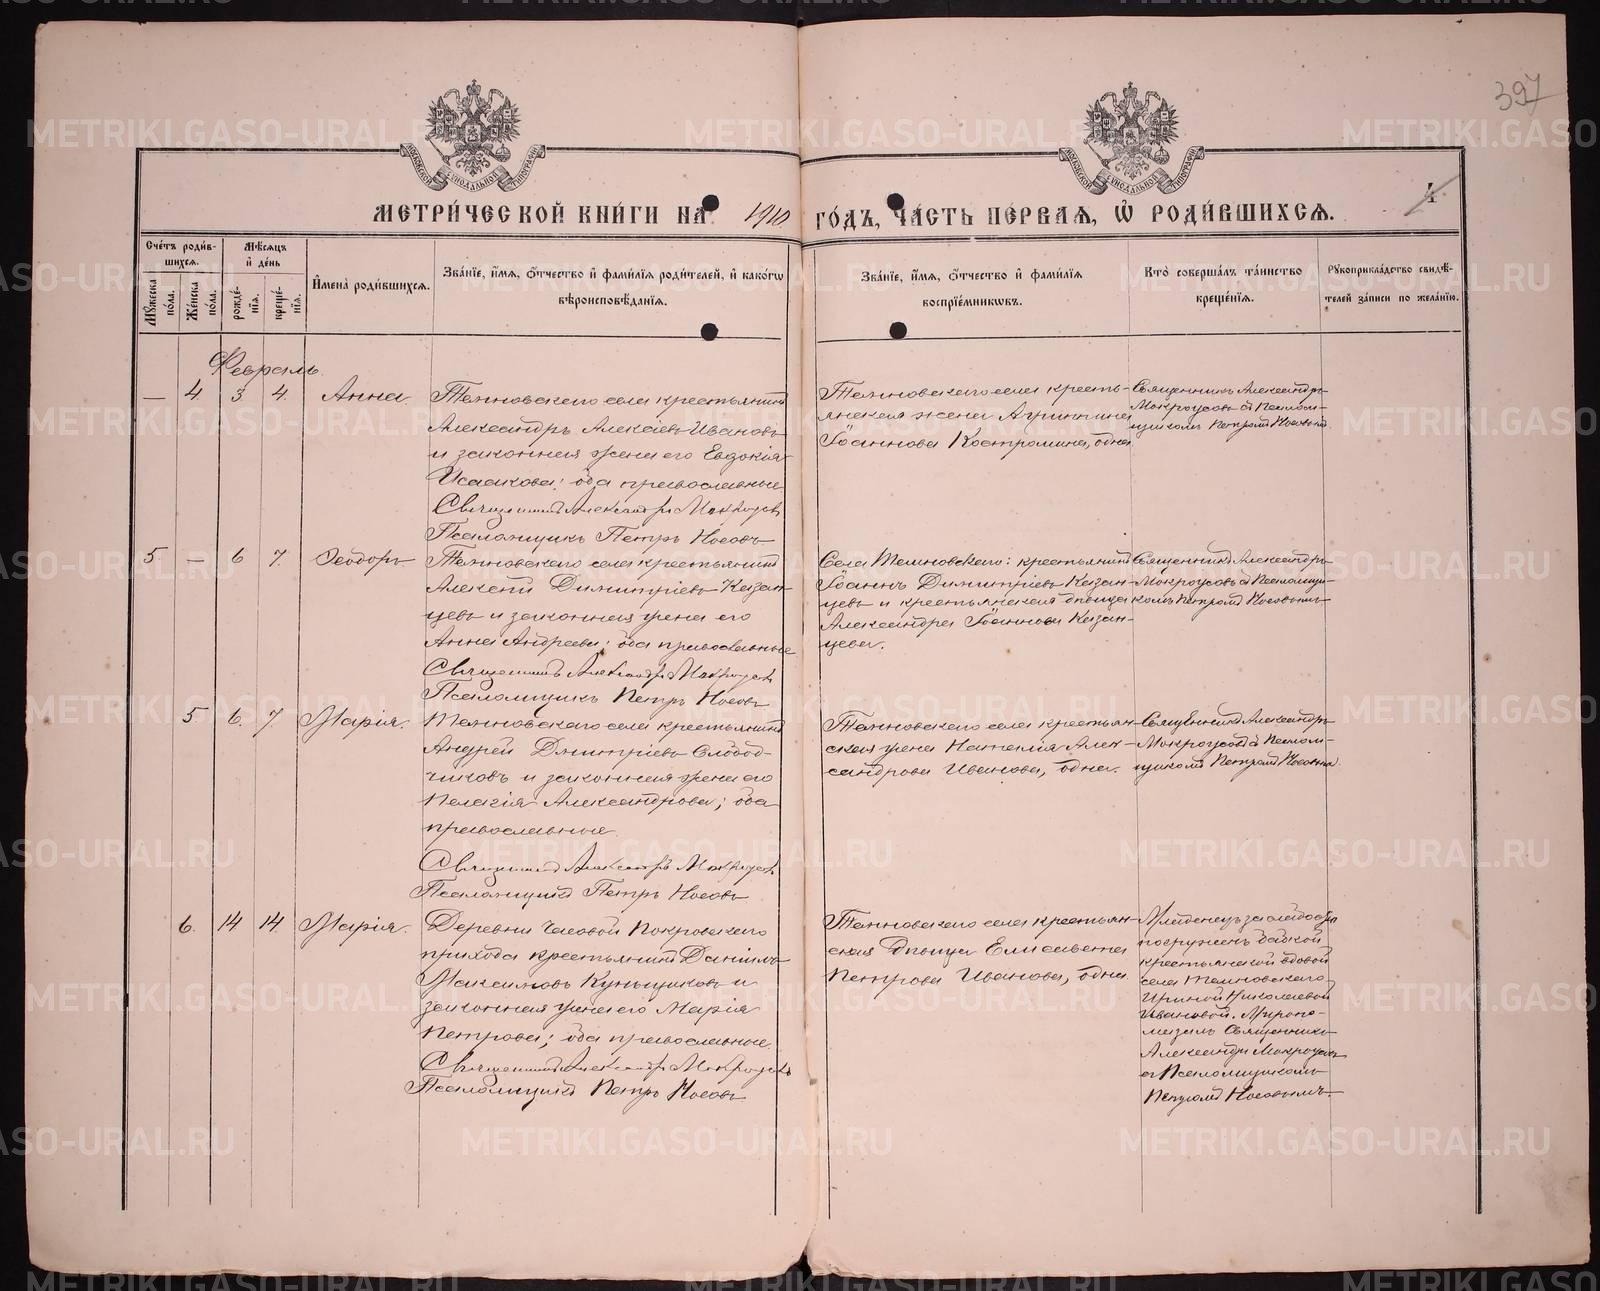 397
4
МЕТРИ́ЧЕСКОЙ КНИ́ГИ НА 1910 ГО́ДЪ, ЧА́СТЬ ПЕ́РВАЯ, Ѿ РОДИ́ВШИХСЯ.
Сче́тъ роди́в-
шихся.
Мѣ́сяцъ
и҆ де́нь
Мꙋ́жеска по́ла.
Же́нска по́ла.
рожде́-
нїя.
креще́-
нїя.
И҆мена̀ роди́вшихся.
Зва́нїе, и҆́мя, ѻ҆́тчество и҆ фами́лїя роди́телей, и҆ како́гѡ
вѣроисповѣ́данїя.
Зва́нїе, и҆́мя, ѻ҆́тчество и҆ фами́лїя
воспрїе́мникѡвъ.
Кто̀ соверша́лъ та́инство
креще́нїя.
Рꙋкоприкла́дство свидѣ́-
телей за́писи по жела́нїю.
Февраль.
— 4 3 4. Анна.
Темновскаго села крестьянинъ
Александръ Алексіевъ Ивановъ
и законная жена его Евдокія
Исаакова; оба православные
Священникъ Александръ Мокроусовъ
Псаломщикъ Петръ Носовъ
Темновскаго села кресть-
янская жена Агриппина
Іоаннова Костромина, одна
Священникъ Александръ
Мокроусовъ съ Псалом-
щикомъ Петромъ Носовымъ
5. — 6 7. Ѳеодоръ
Темновскаго села крестьянинъ
Алексій Димитріевъ Казан-
цевъ и законная жена его
Анна Андреева; оба православные
Священникъ Александръ Мокроусовъ
Псаломщикъ Петръ Носовъ
Села Темновскаго: крестьянинъ
Іоаннъ Димитріевъ Казан-
цевъ и крестьянская дѣвица
Александра Іоаннова Казан-
цева.
Священникъ Александръ
Мокроусовъ съ Псаломщи-
комъ Петромъ Носовымъ
5 6. 7. Марія.
Темновскаго села крестьянинъ
Андрей Дмитріевъ Слобод-
чиковъ и законная жена его
Пелагія Александрова; оба
православные.
Священникъ Александръ Мокроусовъ
Псаломщикъ Петръ Носовъ
Темновскаго села крестьян-
ская жена Наталія Алек-
сандрова Иванова, одна.
Священникъ Александръ
Мокроусовъ съ Псалом-
щикомъ Петромъ Носовымъ.
6. 14 14. Марія.
Деревни Часовой Покровскаго
прихода крестьянинъ Даніилъ
Максимовъ Куньщиковъ и
законная жена его Марія
Петрова; оба православные.
Священникъ Александръ Мокроусовъ
Псаломщикъ Петръ Носовъ
Темновскаго села крестьян-
ская дѣвица Елисавета
Петрова Иванова, одна.
Младенецъ за слабостію
погруженъ бабкой
крестьянской вдовой
села Темновскаго
Ириной Николаевой
Ивановой. Миропо-
мазалъ Священникъ
Александръ Мокроусовъ
съ Псаломщикомъ
Петромъ Носовымъ.
METRIKI.GASO-URAL.RU